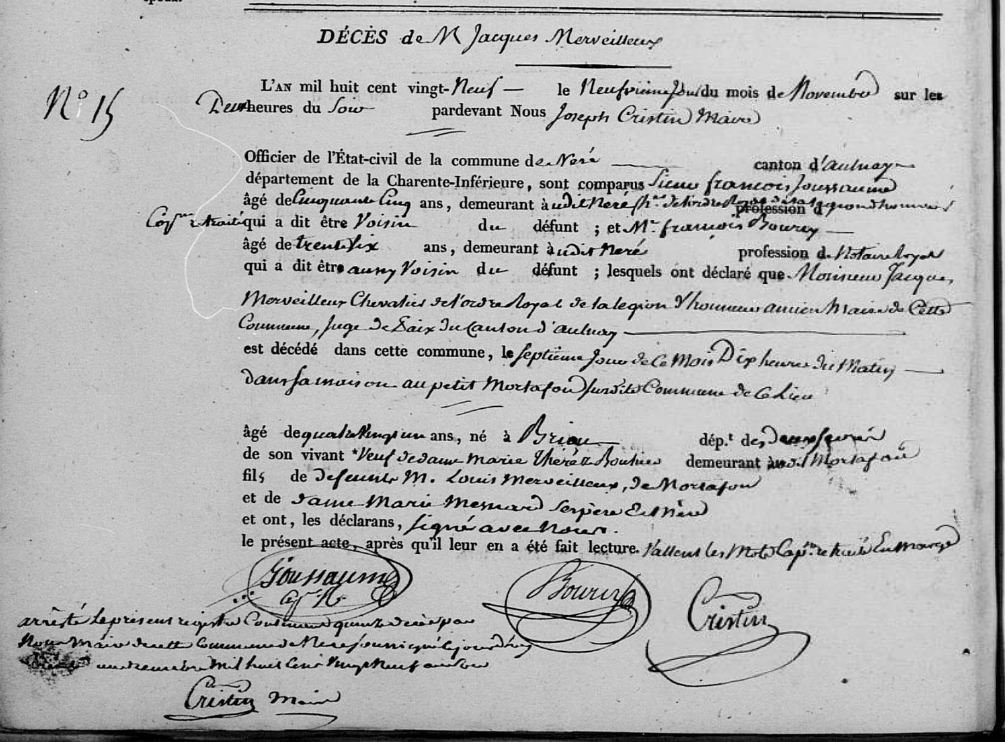 DÉCÈS de Mr Jacques Merveilleux
N° 15
L'AN mil huit cent vingt-Neuf — le Neufvieme Jour du mois de Novembre sur les
Deux heures du Soir pardevant Nous Joseph Cristin Maire
Officier de l'État-civil de la commune de Neré — canton d'aulnay
département de la Charente-Inférieure, sont comparus Sieur françois Joussaume
âgé de Cinquante Cinq ans, demeurant audit Neré Chr. de l'ordre Royal de la Legion d'honneur profession d
Capne retraité qui a dit être Voisin du défunt ; et Mr. françois Bourcy —
âgé de trente six ans, demeurant audit Neré profession de Notaire Royal
qui a dit être aussy Voisin du défunt ; lesquels ont déclaré que Monsieur Jacques
Merveilleux Chevalier de l'ordre Royal de la legion d'honneur ancien Maire de Cette
Commune, Juge de Paix du Canton d'aulnay —
est décédé dans cette commune, le septieme Jour de Ce Mois Dix heures du Matin —
dans sa maison au petit Mortafon susdite Commune de Ce Lieu
âgé de quatre vingt un ans, né à Briou — dép.t des deux sevres
de son vivant Veuf de dame marie thérèze Bouhier demeurant audit Mortafon
fils de defeunts M. Louis Merveilleux, de Mortafon
et de dame Marie Mesnard ses père Et Mère
et ont, les déclarans, signé avec Nous.
le présent acte, après qu'il leur en a été fait lecture. Vallent les Mots Capne retraité En Marge
Joussaume
Cpne Rte
Bourcy
Cristin
arrêté le present registre Contenant quinze deces par
Nous Maire de cette Commune de Neré soussigné Ce jourd'huy
trente un decembre Mil huit Cent Vingt Neuf au soir
Cristin Maire